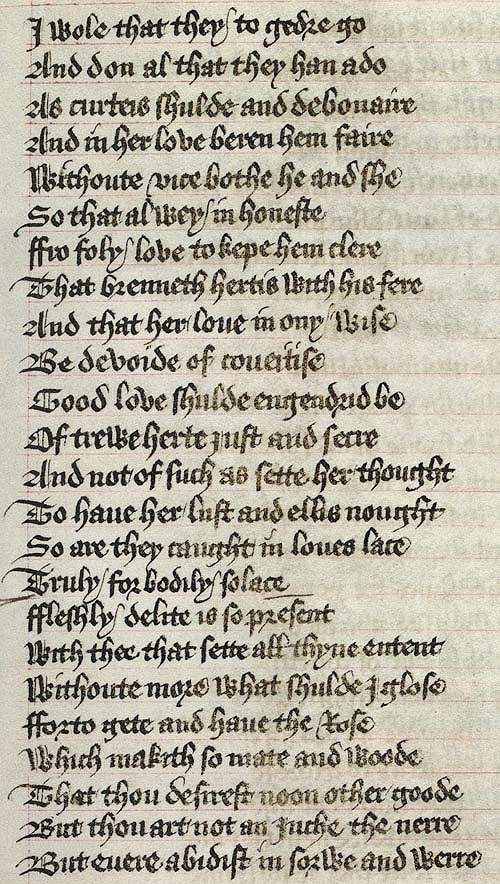 I wole that they to gedre go
And don al that they han ado
As curteis shulde and debonaire
And in her love beren hem faire
Withoute vice bothe he and she
So that alwey in honeste
ffro foly love to kepe hem clere
That brenneth hertis with his fere
And that her loue in ony wise
Be devoide of coueitise
Good love shulde engendrid be
Of trewe herte iust and secre
And not of such as sette her thought
To haue her lust and ellis nought
So are they caught in loues lace
Truly for bodily solace
ffleshly delite is so present
With thee that sette all thyne entent
Withoute more what shulde I glose
fforto gete and haue the Rose
Which makith so mate and woode
That thou desirest noon other goode
But thou art not an inche the nerre
But euere abidist in sorwe and werre